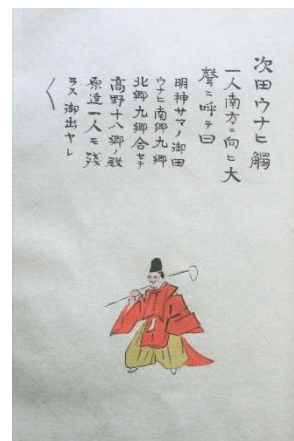 次田ウナヒ觸
一人南方ニ向ヒ大
聲ニ呼テ曰
明神サマノ御田
ウナヒ南郷九郷
北郷九郷合セテ
高野十八郷ノ殿
原達一人モ残
ラス御出ヤレ
〱